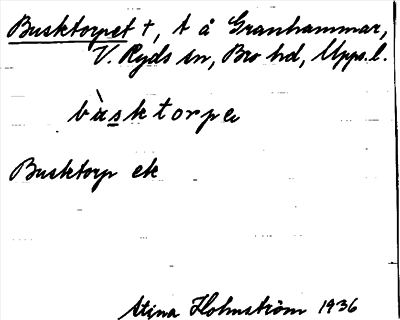 Busktorpet †, t å Granhammar,
V. Ryds sn, Bro hd, Upps. l.
bùsktorpe
Busktorp ek
Stina Holmström 1936